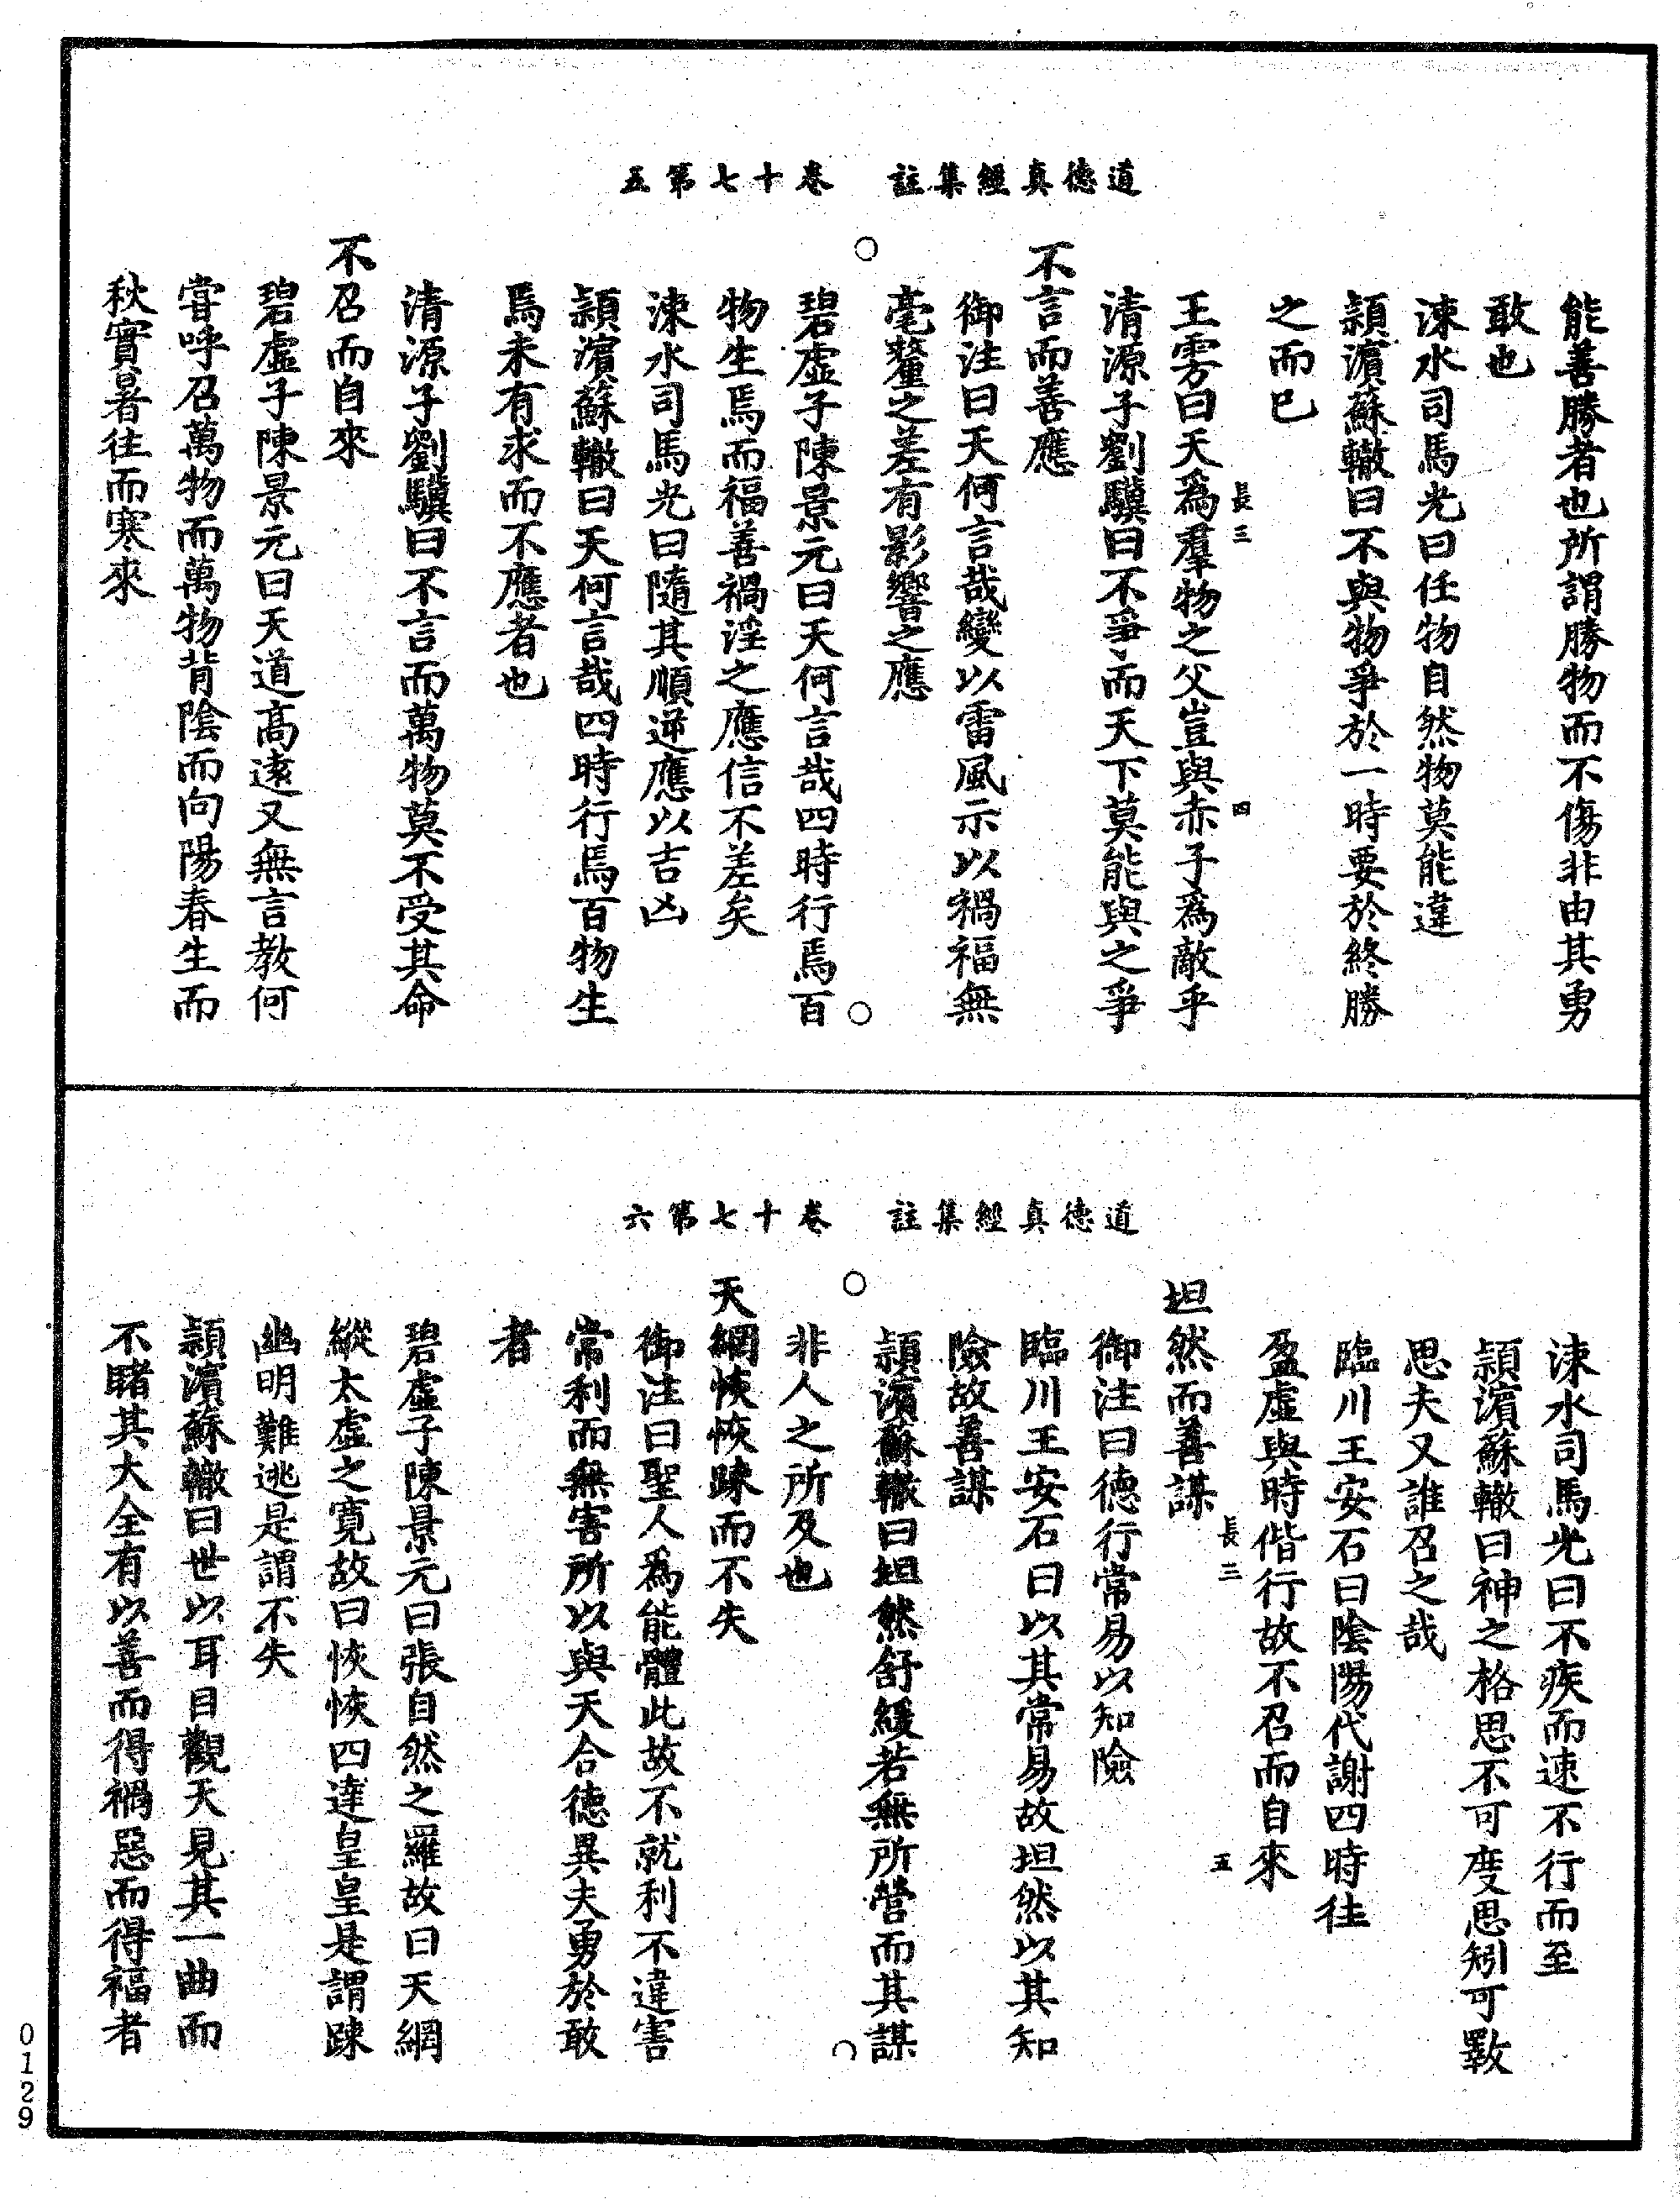 道德真經集註　卷十七第五
能善勝者也所謂勝物而不傷非由其勇
敢也
涑水司馬光曰任物自然物莫能違
潁濵蘇轍曰不與物爭於一時要於終勝
之而已
長三
四
王雱曰天爲羣物之父豈與赤子爲敵乎
清源子劉驥曰不爭而天下莫能與之爭
不言而善應
御注曰天何言哉變以雷風示以禍福無
毫釐之差有影響之應
碧虛子陳景元曰天何言哉四時行焉百
物生焉而福善禍淫之應信不差矣
涑水司馬光曰隨其順逆應以吉凶
潁濵蘇轍曰天何言哉四時行焉百物生
焉未有求而不應者也
清源子劉驥曰不言而萬物莫不受其命
不召而自來
碧虛子陳景元曰天道高遠又無言教何
甞呼召萬物而萬物背陰而向陽春生而
秋實暑往而寒來
道德真經集註　卷十七第六
涑水司馬光曰不疾而速不行而至
潁濵蘇轍曰神之格思不可度思矧可斁
思夫又誰召之哉
臨川王安石曰陰陽代謝四時往
盈虛與時偕行故不召而自來
長三
五
坦然而善謀
御注曰德行常易以知險
臨川王安石曰以其常易故坦然以其知
險故善謀
潁濵蘇轍曰坦然舒緩若無所營而其謀
非人之所及也
天網恢恢踈而不失
御注曰聖人爲能體此故不就利不違害
常利而無害所以與天合德異夫勇於敢
者
碧虛子陳景元曰張自然之羅故曰天網
縱太虛之寬故曰恢恢四達皇皇是謂踈
幽明難逃是謂不失
潁濵蘇轍曰世以耳目觀天見其一曲而
不睹其大全有以善而得禍惡而得福者
0129